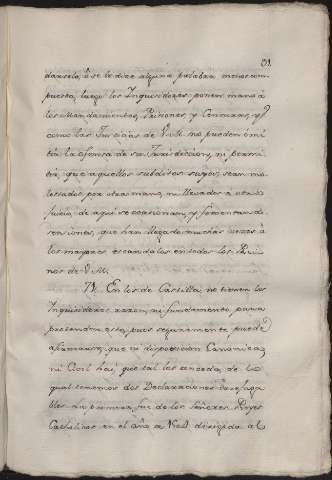 darselo, ó se le dize alguna palabra menos com
puesta, luego los Inquisidores ponen mano á
los Mandamientos, Prisiones, y Censuras, y
como las Justicias de V.M. no pueden omi
tir la defensa de su Jurisdiccion, ni permi
tir, que aquellos subditos suyos, sean mo
lestados por otra mano, ni llevados á otro
Juicio, de aqui se ocasionan, y fomentan di
sensiones, que han llegado muchas vezes á
los mayores escandalos en todos los Rei
nos de V.M.
En los de Castilla, no tienen los
Inquisidores razon, ni fundamento para
pretender esto, pues seguramente puede
afirmarse, que ni disposicion Canonica,
ni Civil hai, que tal les conceda, de lo
qual tenemos dos Declaraciones
bles: la primera, fue de los Señores Reyes
Catholicos en el año de dirigida al